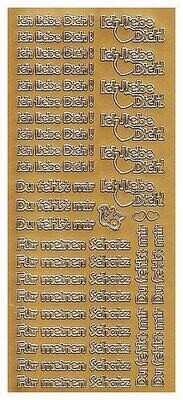 Ich liebe Dich!
Ich liebe Dich!
Ich liebe Dich!
Ich liebe Dich!
Ich liebe Dich!
Ich liebe Dich!
Ich liebe Dich!
Ich liebe Dich!
Ich liebe Dich!
Du fehlst mir
Du fehlst mir
Du fehlst mir
Für meinen Schatz
Für meinen Schatz
Für meinen Schatz
Für meinen Schatz
Für meinen Schatz
Für meinen Schatz
Für meinen Schatz
Für meinen Schatz
Ich liebe
Dich!
Ich liebe
Dich!
Ich liebe
Dich!
Ich liebe
Dich!
Ich liebe
Dich!
Ich liebe
Dich!
Du fehlst mir
Du fehlst mir
Du fehlst mir
Du fehlst mir